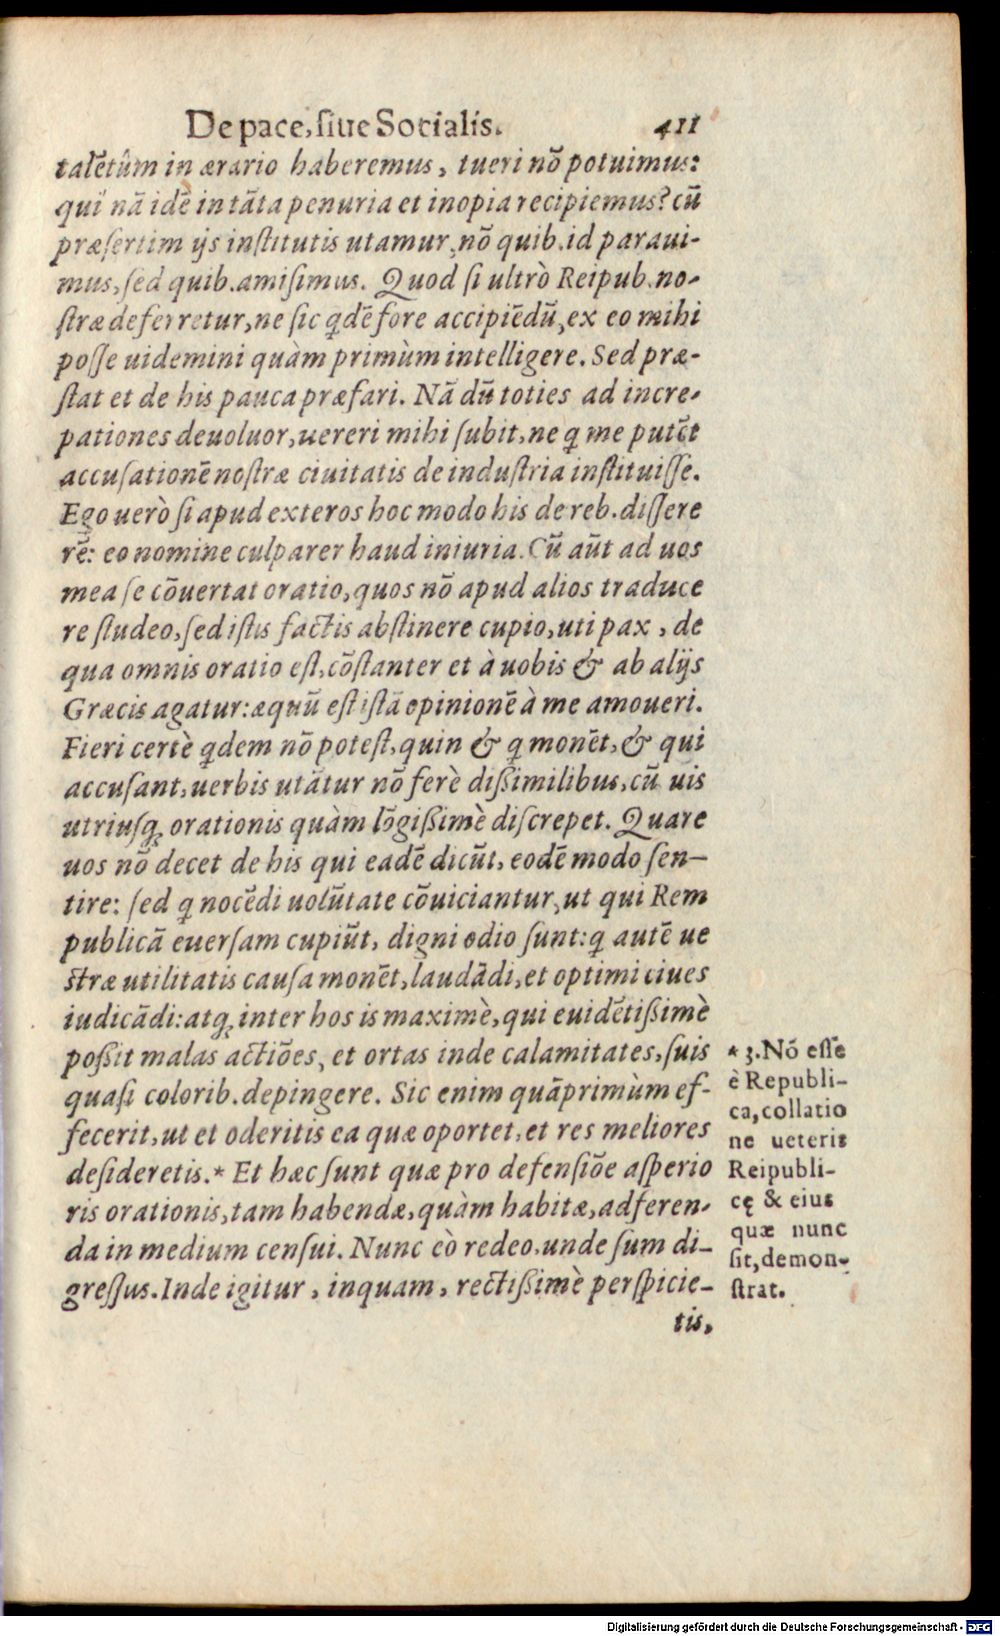 De pace, ſiue Socialis. 411
talẽtûm in ærario haberemus, tueri nõ potuimus:
qui nã idẽ in tãta penuria et inopia recipiemus? cũ
præſertim ijs inſtitutis utamur, nõ quib. id paraui-
mus, ſed quib. amiſimus. Quod ſi ultrò Reipub. no-
ſtræ deferretur, ne ſic qdẽ fore accipiẽdũ, ex eo mihi
poſſe uidemini quàm primùm intelligere. Sed præ-
ſtat et de his pauca præfari. Nã dũ toties ad incre-
pationes deuoluor, uereri mihi ſubit, ne q me putẽt
accuſationẽ noſtræ ciuitatis de induſtria inſtituiſſe.
Ego uerò ſi apud exteros hoc modo his de reb. diſſere
rẽ: eo nomine culparer haud iniuria. Cũ aũt ad uos
mea ſe cõuertat oratio, quos nõ apud alios traduce
re ſtudeo, ſed iſtis factis abſtinere cupio, uti pax, de
qua omnis oratio eſt, cõſtanter et à uobis & ab alijs
Græcis agatur: æquũ eſt iſtã opinionẽ à me amoueri.
Fieri certè qdem nõ poteſt, quin & q monẽt, & qui
accuſant, uerbis utãtur nõ ferè dißimilibus, cũ uis
utriuſq; orationis quàm lõgißimè diſcrepet. Quare
uos nõ decet de his qui eadẽ dicũt, eodẽ modo ſen-
tire: ſed q nocẽdi uolũtate cõuiciantur, ut qui Rem
publicã euerſam cupiũt, digni odio ſunt: q autẽ ue
ſtræ utilitatis cauſa monẽt, laudãdi, et optimi ciues
iudicãdi: atq; inter hos is maximè, qui euidẽtißimè
poßit malas actiões, et ortas inde calamitates, ſuis
quaſi colorib. depingere. Sic enim quãprimùm ef-
fecerit, ut et oderitis ea quæ oportet, et res meliores
deſideretis.* Et hæc ſunt quæ pro defenſiõe aſperio
ris orationis, tam habendæ, quàm habitæ, adferen-
da in medium cenſui. Nunc eò redeo, unde ſum di-
greſſus. Inde igitur, inquam, rectißimè perſpicie-
tis,
* 3. Nõ eſſe
è Republi-
ca, collatio
ne ueteris
Reipubli-
cę & eius
quæ nunc
ſit, demon-
ſtrat.
Digitalisierung gefördert durch die Deutsche Forschungsgemeinschaft - DFG